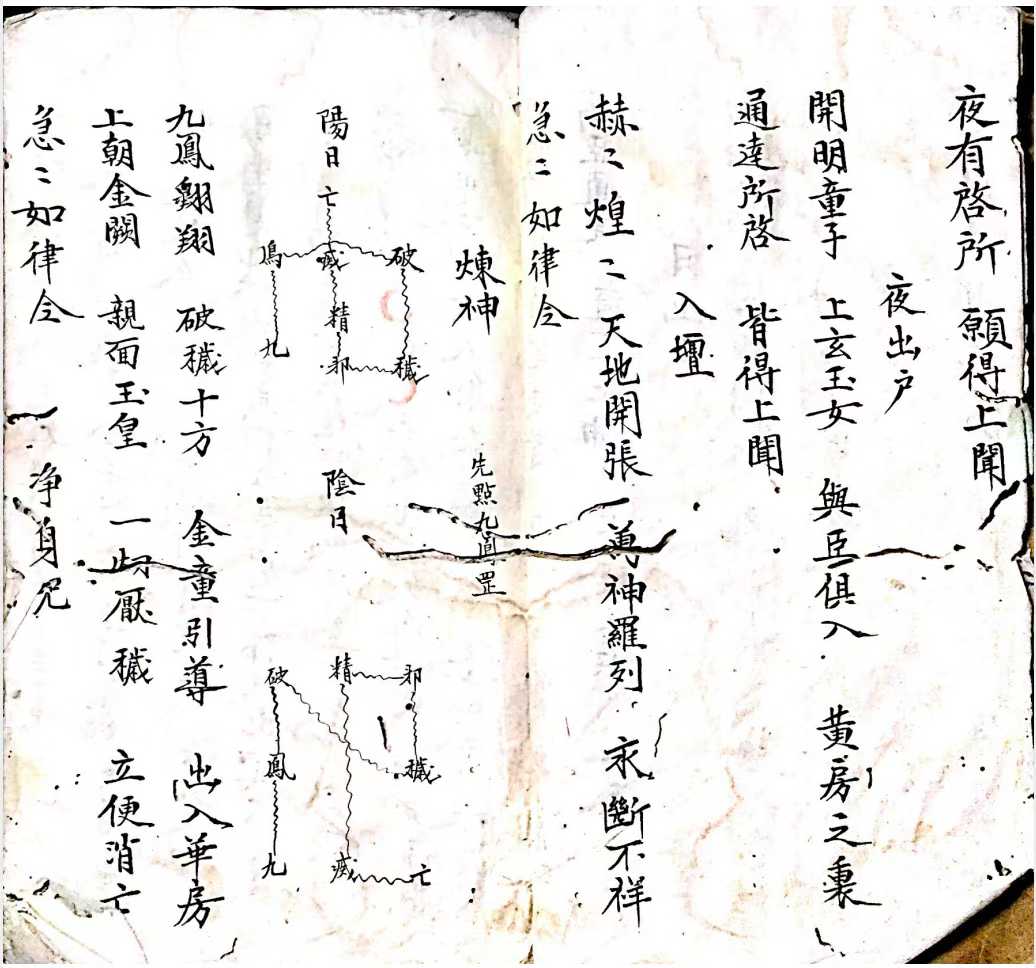 夜有啓所 願得上聞
夜出户
開明童子 上玄玉女 與臣俱入 黄房之裏
通達所啓 皆得上聞
入壇
赫〻煌〻 天地開張 萬神羅列 永斷不祥
急〻如律令
煉神
先點九鳳罡
陽日
亡
破 穢 鳳
精
穢 邪 九
陰日
邪 精 破
穢 鳳
亡 穢 九
九鳳翱翔 破穢十方 金童引導 出入華房
上朝金闕 親面玉皇 一切厭穢 立便消亡
急〻如律令 净身咒